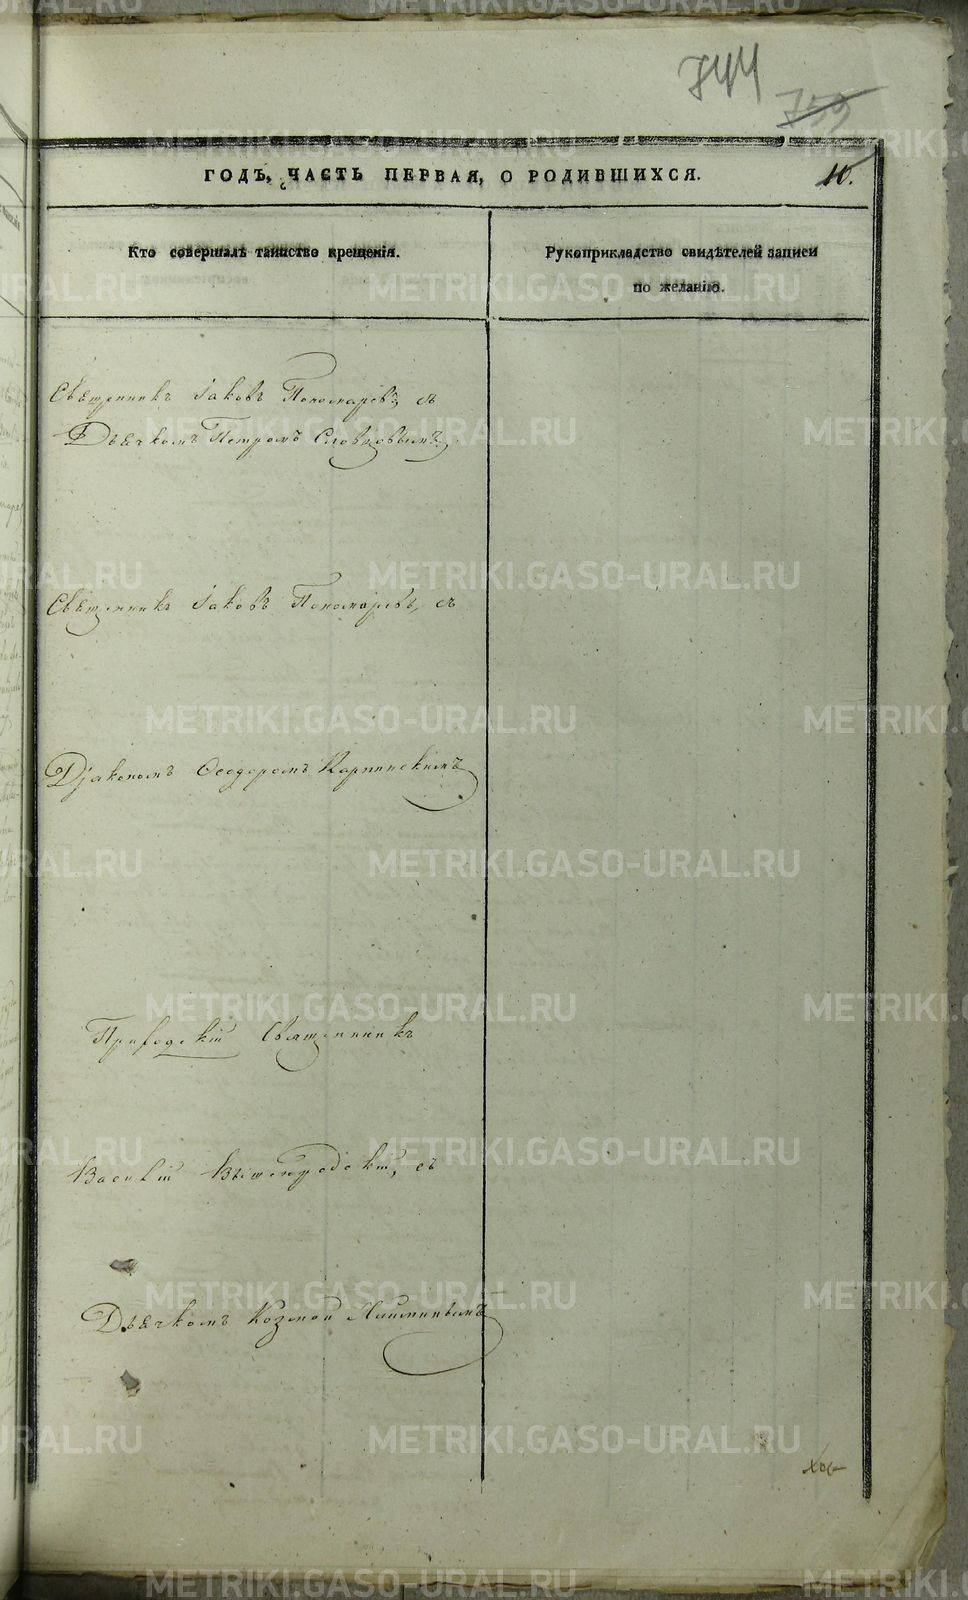 744
759
ГОДЪ, ЧАСТЬ ПЕРВАЯ, О РОДИВШИХСЯ.
10.
Кто совершалъ таинство крещенія.
Рукоприкладство свидѣтелей записи
по желанію.
Священникъ Іаковъ Пономаревъ, съ
Дьячкомъ Петромъ Словцовымъ.
Священникъ Іаковъ Пономаревъ, съ
Діакономъ Ѳеодоромъ Карпинскимъ
Приходскій Священникъ
Василій съ
Дьячкомъ Козмой
METRIKI.GASO-URAL.RU